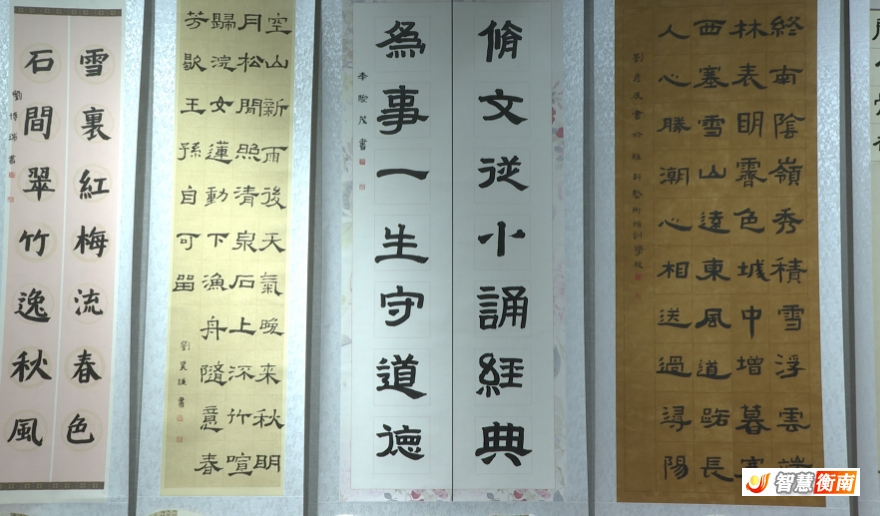 終南陰嶺秀積雪浮雲端
林表明霽色城中增暮寒
西塞雪山遠東風道路長
人心勝潮心相送過潯陽
脩文從小誦經典
為事一生守道德
空山新雨後天氣晚來秋明
月松間照清泉石上流竹喧
歸浣女蓮動下漁舟隨意春
芳歇王孫自可留
雪裏紅梅流春色
石間翠竹逸秋風
智慧衡南